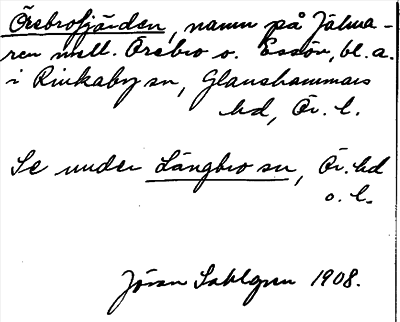 Örebrofjärden, namn på Jälma-
ren mell. Örebro o. Essön, bl. a.
i Rinkaby sn, Glanshammars
hd, Ör. l.
Se under Längbro sn, Ör. hd
o. l.
Jöran Sahlgren 1908.